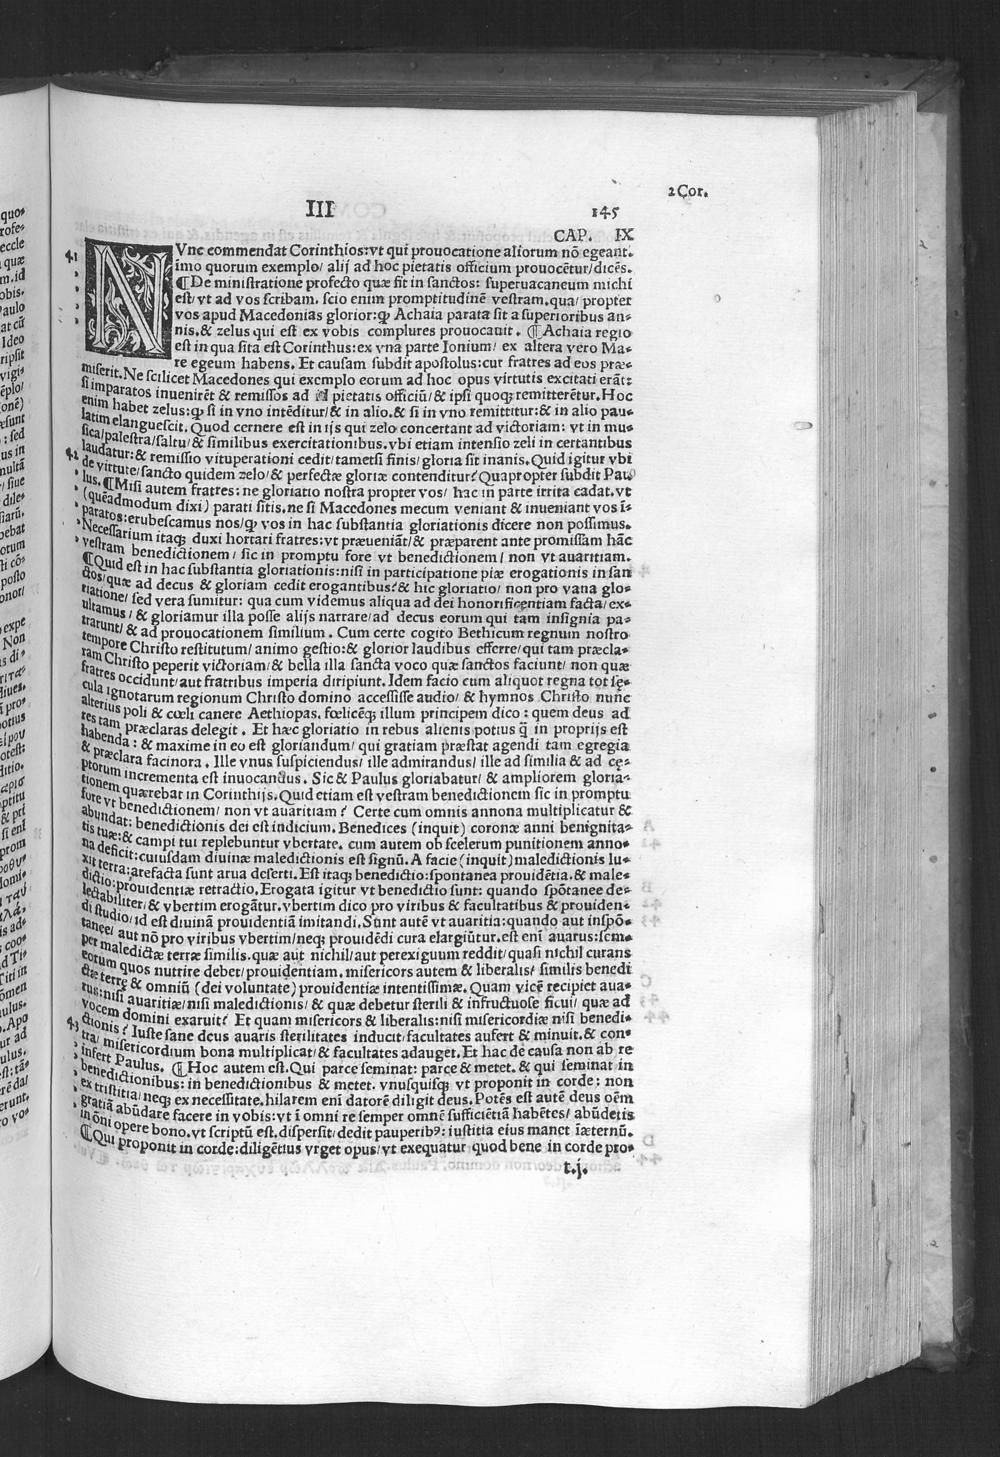 2 Cor.
III
145
CAP. IX
41
NVnc commendat Corinthios: vt qui prouocatione aliorum nō egeant.
imo quorum exemplo/ alij ad hoc pietatis officium prouocētur/ dicēs.
¶ De ministratione profecto quæ fit in sanctos: superuacaneum michi
est/ vt ad vos scribam. scio enim promptitudinē vestram. qua/ propter
vos apud Macedonias glorior: ꝙ Achaia parata sit a superioribus an-
nis. & zelus qui est ex vobis complures prouocauit. ¶ Achaia regio
est in qua sita est Corinthus: ex vna parte Ionium/ ex altera vero Ma-
re egeum habens. Et causam subdit apostolus: cur fratres ad eos præ-
miserit. Ne scilicet Macedones qui exemplo eorum ad hoc opus virtutis excitati erāt:
si imparatos inuenirēt & remissos ad pietatis officiū/ & ipsi quoqꝫ remitterētur. Hoc
enim habet zelus: ꝙ si in vno intēditur/ & in alio. & si in vno remittitur: & in alio pau-
latim elanguescit. Quod cernere est in ijs qui zelo concertant ad victoriam: vt in mu-
sica/ palestra/ saltu/ & similibus exercitationibus. vbi etiam intensio zeli in certantibus
42
laudatur: & remissio vituperationi cedit/ tametsi finis/ gloria sit inanis. Quid igitur vbi
de virtute/ sancto quidem zelo/ & perfectæ gloriæ contenditur? Quapropter subdit Pau
lus. ¶ Misi autem fratres: ne gloriatio nostra propter vos/ hac in parte irrita cadat. vt
(quēadmodum dixi) parati sitis. ne si Macedones mecum veniant & inueniant vos ī-
paratos: erubescamus nos/ ꝙ vos in hac substantia gloriationis dicere non possimus.
Necessarium itaqꝫ duxi hortari fratres: vt præueniāt/ & præparent ante promissam hāc
vestram benedictionem/ sic in promptu fore vt benedictionem/ non vt auaritiam.
¶ Quid est in hac substantia gloriationis: nisi in participatione piæ erogationis in san
ctos/ quæ ad decus & gloriam cedit erogantibus? & hic gloriatio/ non pro vana glo-
riatione/ sed vera sumitur: qua cum videmus aliqua ad dei honorificentiam facta/ ex-
ultamus/ & gloriamur illa posse alijs narrare/ ad decus eorum qui tam insignia pa-
trarunt/ & ad prouocationem similium. Cum certe cogito Bethicum regnum nostro
tempore Christo restitutum/ animo gestio: & glorior laudibus efferre/ qui tam præcla-
ram Christo peperit victoriam/ & bella illa sancta voco quæ sanctos faciunt/ non quæ
fratres occidunt/ aut fratribus imperia diripiunt. Idem facio cum aliquot regna tot sę-
cula ignotarum regionum Christo domino accessisse audio/ & hymnos Christo nunc
alterius poli & cœli canere Aethiopas. fœlicēqꝫ illum principem dico: quem deus ad
res tam præclaras delegit. Et hæc gloriatio in rebus alienis potius q̄ in proprijs est
habenda: & maxime in eo est gloriandum/ qui gratiam præstat agendi tam egregia
& præclara facinora. Ille vnus suspiciendus/ ille admirandus/ ille ad similia & ad cę-
ptorum incrementa est inuocandus. Sic & Paulus gloriabatur/ & ampliorem gloria-
tionem quærebat in Corinthijs. Quid etiam est vestram benedictionem sic in promptu
fore vt benedictionem/ non vt auaritiam? Certe cum omnis annona multiplicatur &
abundat: benedictionis dei est indicium. Benedices (inquit) coronæ anni benignita-
tis tuæ: & campi tui replebuntur vbertate. cum autem ob scelerum punitionem anno-
na deficit: cuiusdam diuinæ maledictionis est signū. A facie (inquit) maledictionis lu-
xit terra: arefacta sunt arua deserti. Est itaqꝫ benedictio: spontanea prouidētia. & male-
dictio: prouidentiæ retractio. Erogata igitur vt benedictio sunt: quando spōtanee de-
lectabiliter/ & vbertim erogātur. vbertim dico pro viribus & facultatibus & prouiden-
di studio/ id est diuinā prouidentiā imitandi. Sunt autē vt auaritia: quando aut inspō-
tanee/ aut nō pro viribus vbertim/ neqꝫ prouidēdi cura elargiūtur. est enī auarus: sem-
per maledictæ terræ similis. quæ aut nichil/ aut perexiguum reddit/ quasi nichil curans
eorum quos nutrire debet/ prouidentiam. misericors autem & liberalis/ similis benedi
ctæ terrę & omniū (dei voluntate) prouidentiæ intentissimæ. Quam vicē recipiet aua-
rus: nisi auaritiæ/ nisi maledictionis/ & quæ debetur sterili & infructuose ficui/ quæ ad
vocem domini exaruit? Et quam misericors & liberalis: nisi misericordiæ nisi benedi-
43
ctionis? Iuste sane deus auaris sterilitates inducit/ facultates aufert & minuit. & con-
tra/ misericordium bona multiplicat/ & facultates adauget. Et hac de causa non ab re
infert Paulus. ¶ Hoc autem est. Qui parce seminat: parce & metet. & qui seminat in
benedictionibus: in benedictionibus & metet. vnusquisqꝫ vt proponit in corde: non
ex tristitia/ neqꝫ ex necessitate. hilarem enī datorē diligit deus. Potēs est autē deus oēm
gratiā abūdare facere in vobis: vt ī omni re semper omnē sufficiētiā habētes/ abūdetis
in ōni opere bono. vt scriptū est. dispersit/ dedit pauperibꝰ: iustitia eius manet ī æternū.
¶ Qui proponit in corde: diligētius vrget opus/ vt exequatur quod bene in corde pro-
t.j.